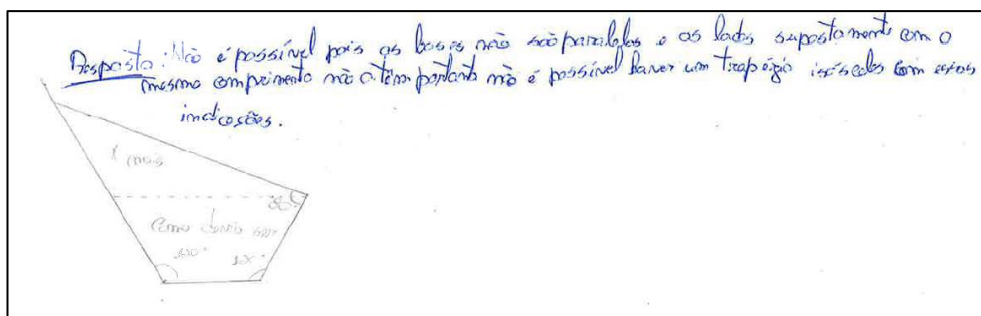 Resposta: Não é possível pois as bases não são paralelas e os lados supostamente com o
mesmo comprimento não o têm portanto não é possível haver um trapézio isósceles com estas
indicações.
mais
como devia ser
120°